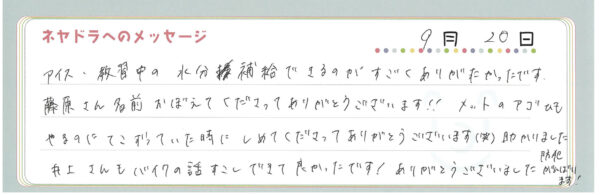 ネヤドラへのメッセージ
9月 20日
アイス・教習中の水分補給できるのがすごくありがたかったです。
藤原さん名前おぼえてくださってありがとうございます!! メットのアゴひも
やるのにてこずっていた時にしめてくださってありがとうございます(笑)助かりました
井上さんもバイクの話すこしできて良かったです! ありがとうございました
がんばり
ます!